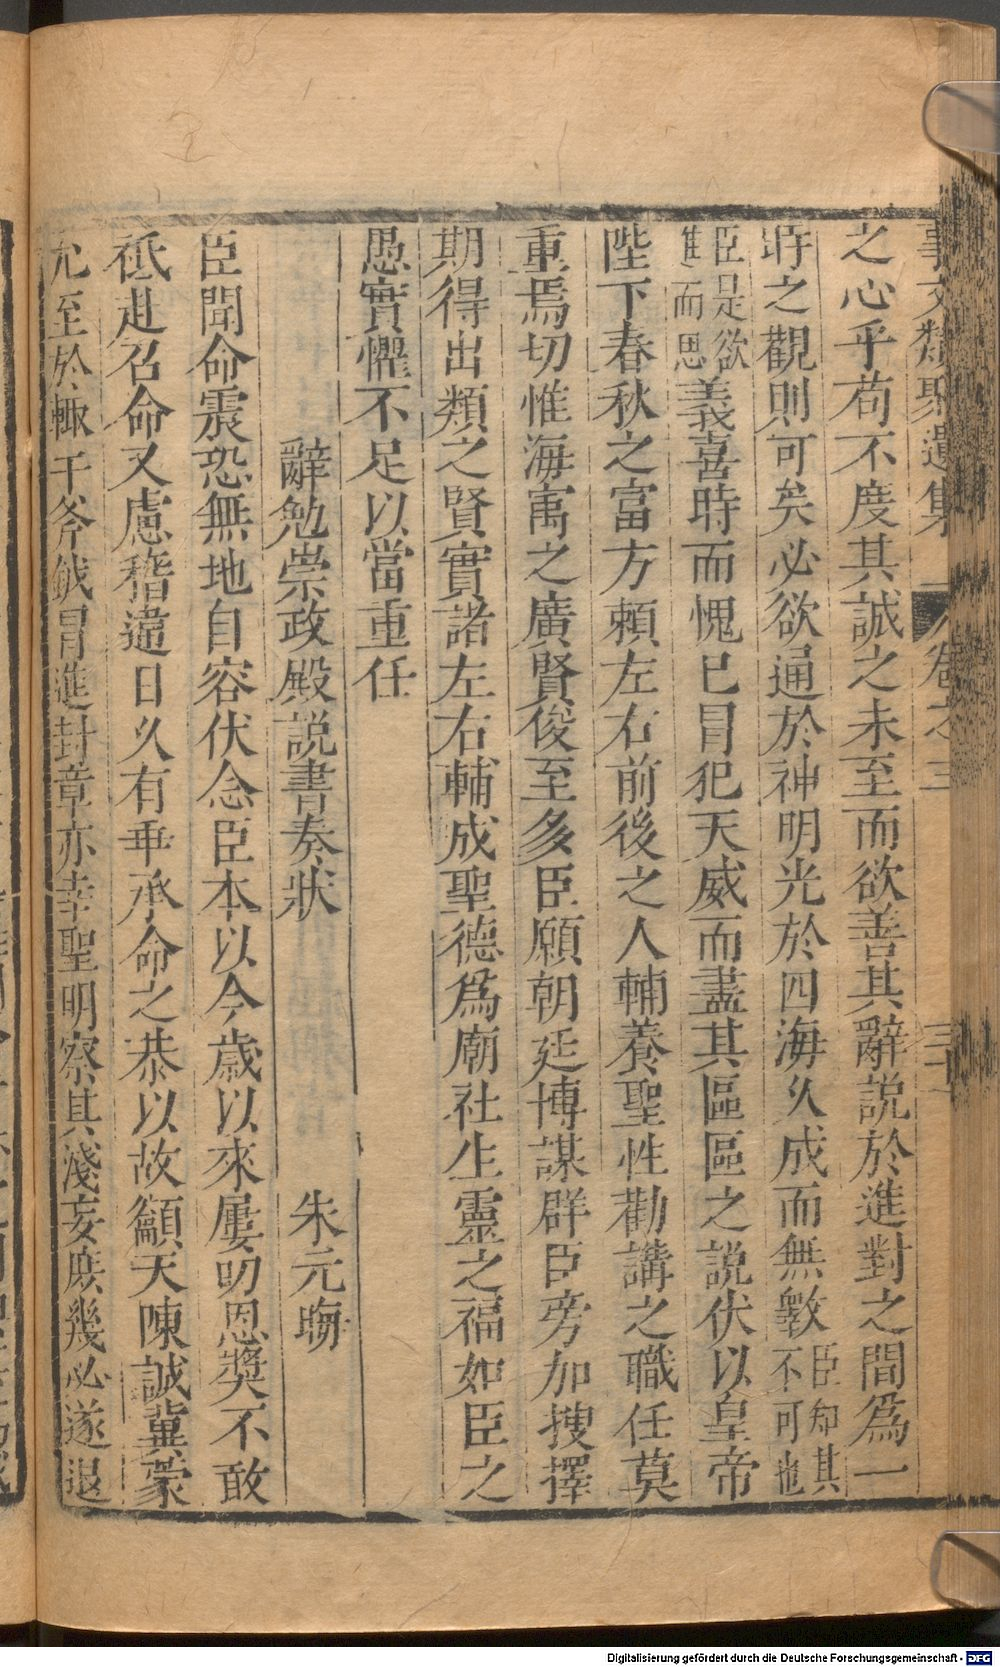 事文類聚遺集 卷之三
之心乎苟不度其誠之未至而欲善其辭説於進對之間爲一
時之觀則可矣必欲通於神明光於四海久成而無斁臣知其不可也
臣是欲進而思義喜時而愧已冒犯天威而盡其區區之説伏以皇帝
陛下春秋之富方頼左右前後之人輔養聖性勸講之職任莫
重焉切惟海㝢之廣賢俊至多臣願朝廷博謀群臣旁加搜擇
期得出類之賢實諸左右輔成聖德爲廟社生靈之福如臣之
愚實懼不足以當重任
辭勉崇政殿説書奏狀 朱元晦
臣聞命震恐無地自容伏念臣本以今歲以來屢叨恩奬不敢
祗赴召命又慮稽違日久有乖承命之恭以故籲天陳誠冀蒙
允至於輙干斧鉞冒進封章亦幸聖明察其淺妄庶幾必遂退
Digitalisierung gefördert durch die Deutsche Forschungsgemeinschaft - DFG